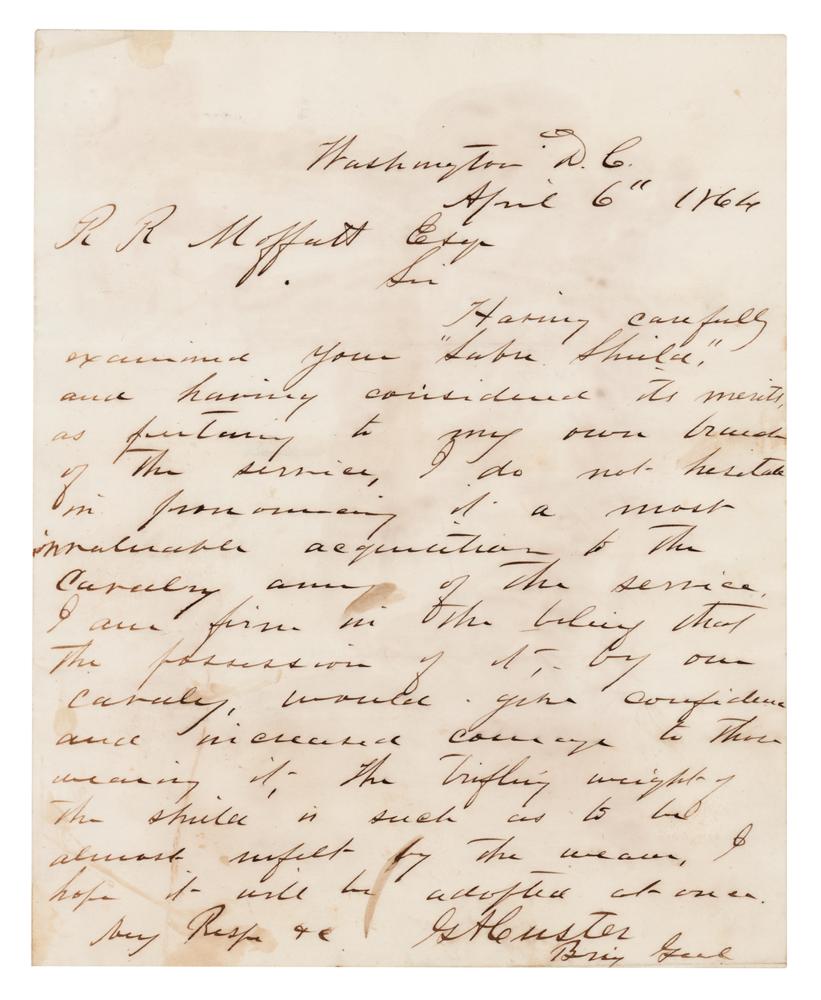 Washington D. C.
April 6" 1864
R R Moffatt Esq
Sir
Having carefully
examined your "Sabre Shield,"
and having considered its merits,
as pertaining to my own branch
of the service, I do not hesitate
in pronouncing it a most
invaluable acquisition to the
Cavalry arm of the service.
I am firm in the belief that
the possession of it, by our
cavalry, would give confidence
and increased courage to those
wearing it, the trifling weight of
the shield is such as to be
almost unfelt by the wearer, I
hope it will be adopted at once.
Very Resp &c GACuster
Brig Genl